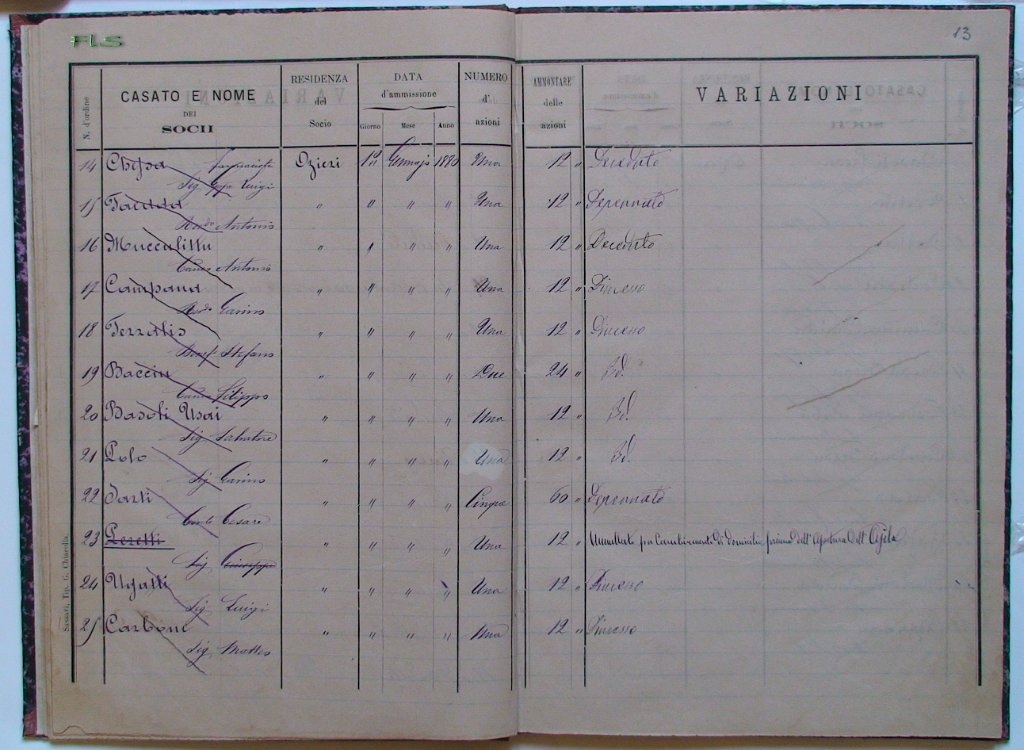 FLS
13
N. d'ordine
CASATO E NOME
DEI
SOCII
RESIDENZA
del
Socio
DATA
d'ammissione
Giorno Mese Anno
NUMERO
d'
azioni
AMMONTARE
delle
azioni
VARIAZIONI
14 Chessa Ozieri 12 Gennajo 1880 Una 12 " Decaduto
Sig. Luigi
15 Taedda " " " " Una 12 " Depennato
Antonio
16 Muccalittu " " " " Una 12 " Decaduto
Antonio
17 Campana " " " " Una 12 "
Gavino
18 Terralis " " " " Una 12 "
Benef. Stefano
19 Bacciu " " " " Due 24 " Id.
Filippo
20 Basoli Usai " " " " Una 12 " Id.
Sig. Salvatore
21 Polo " " " " Una 12 " Id.
Sig. Gavino
22 " " " " Cinque 60 " Depennato
Conte Cesare
23 Peretti " " " " Una 12 " Annullato per Cambiamento di domicilio prima dell'Apertura dell'
Sig. Giuseppe
24 " " " " Una 12 "
Sig. Luigi
25 Carboni " " " " Una 12 "
Sig. Matteo
Sassari, Tip. G. Chiarella.